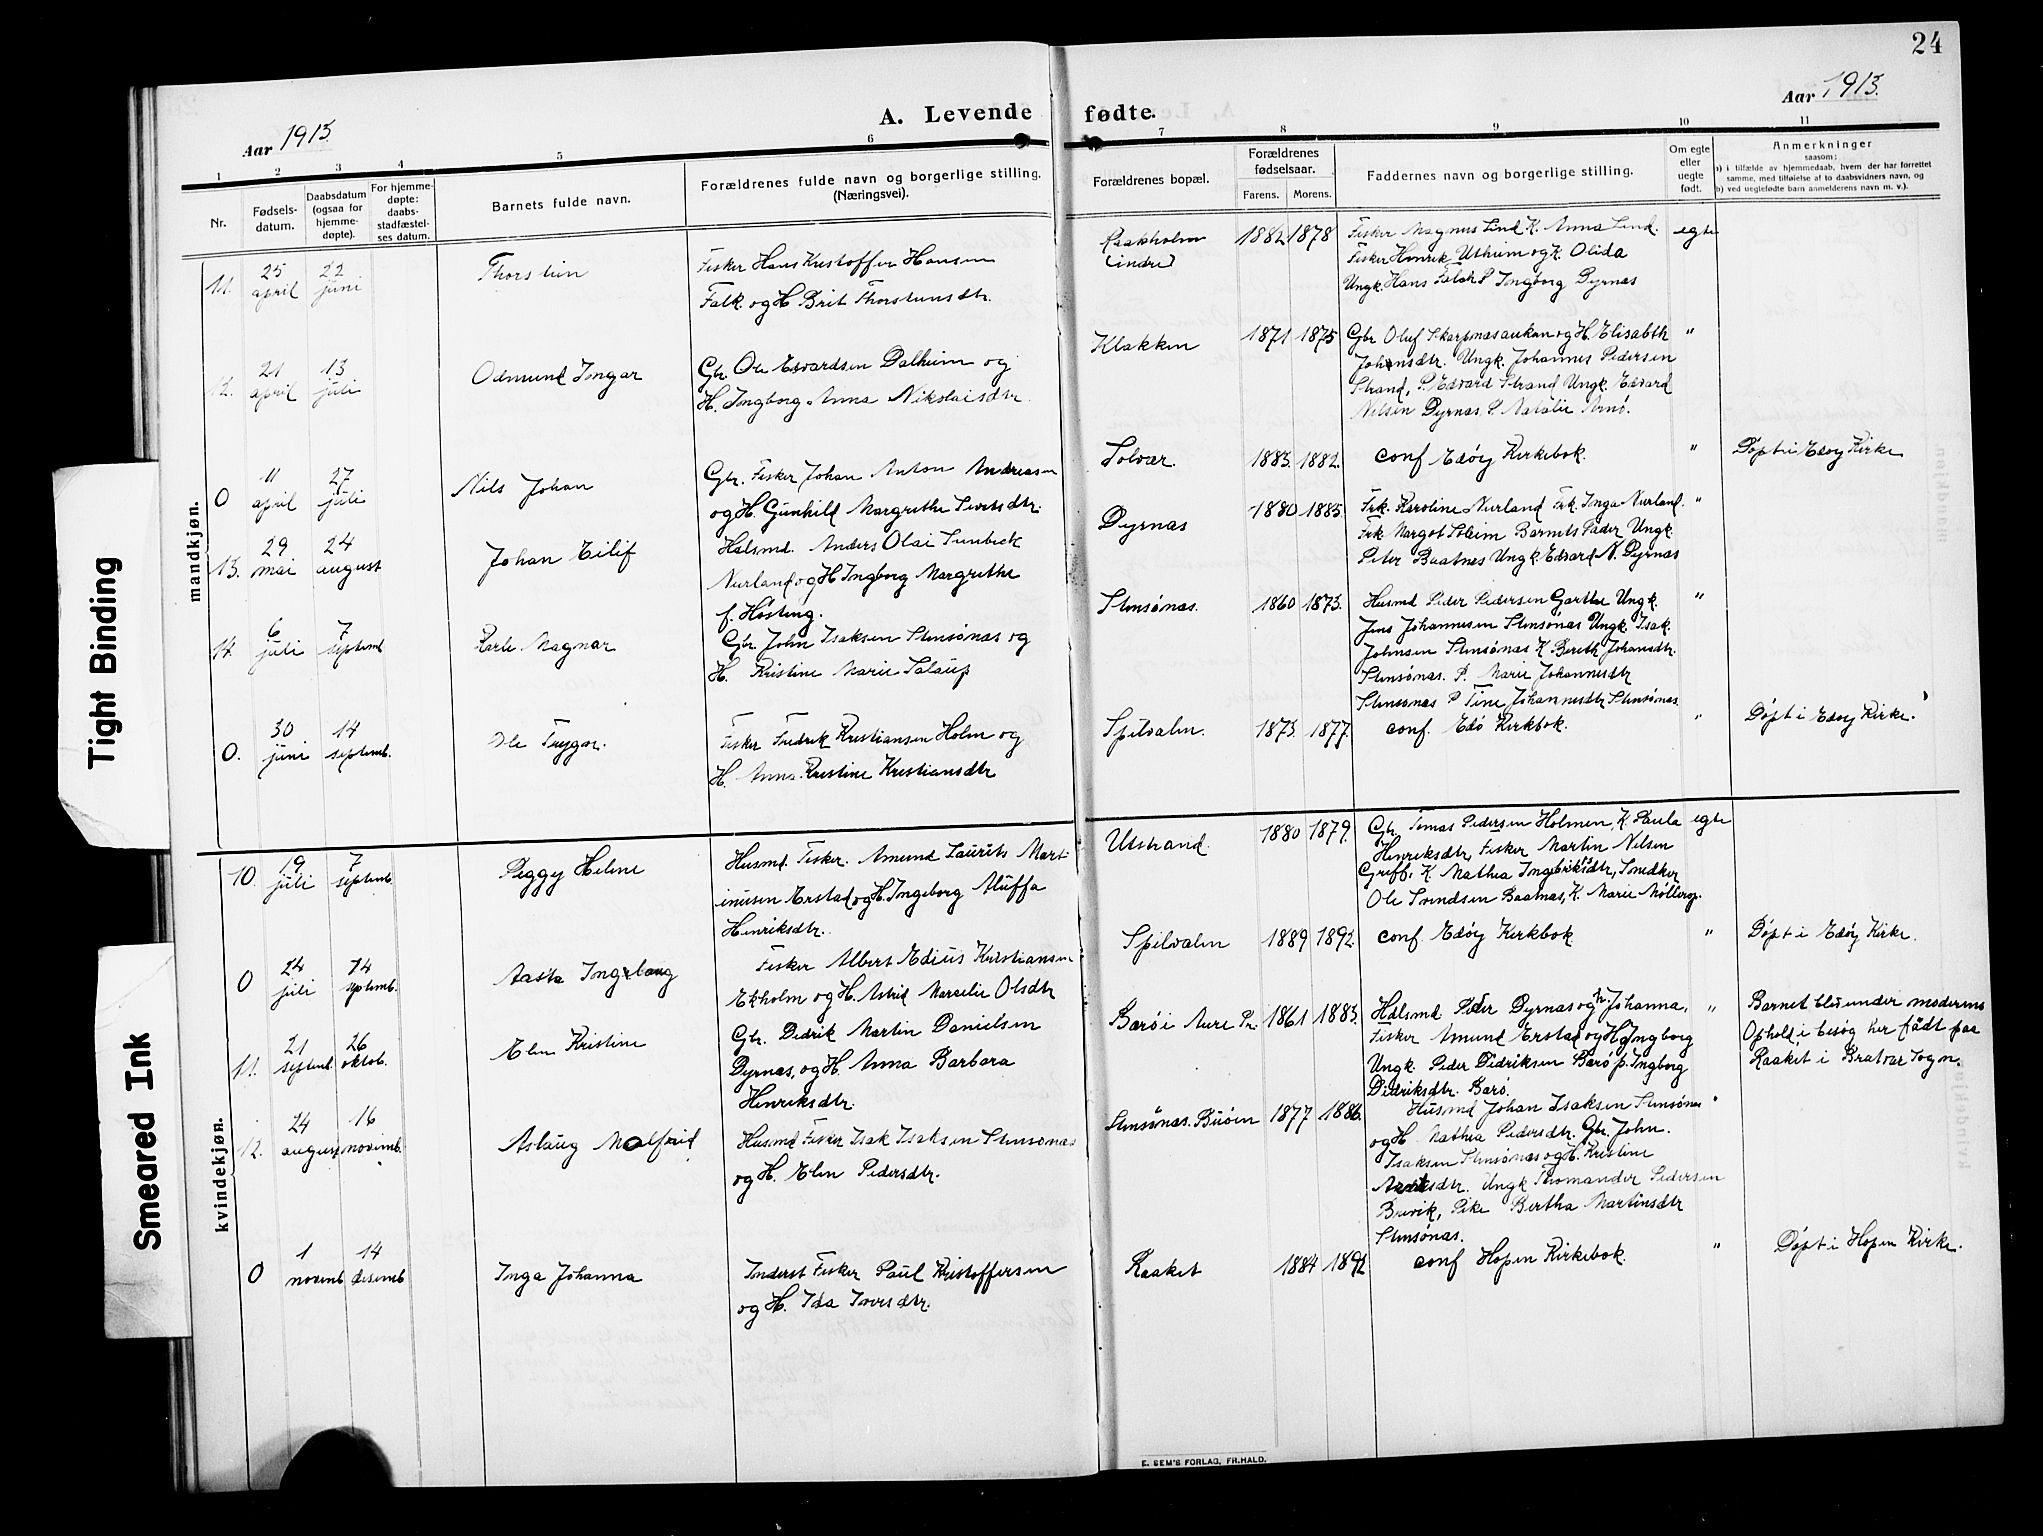 24
Aar 1913.
A. Levende
fødte.
Aar 1913.
1 2 3 4 5 6 7 8 9 10 11
Nr.
Fødsels-
datum.
Daabsdatum
(ogsaa for
hjemme-
døpte).
For hjemme-
døpte:
daabs-
stadfæstel-
ses datum.
Barnets fulde navn.
Forældrenes fulde navn og borgerlige stilling.
(Næringsvei).
Forældrenes bopæl.
Forældrenes
fødselsaar.
Farens. Morens.
Faddernes navn og borgerlige stilling.
Om egte
eller
uegte
født.
Anmerkninger
saasom:
a) i tilfælde av hjemmedaab, hvem der har forrettet
samme, med tilføielse af to daabsvidners navn, og
b) ved uegtefødte barn anmelderens navn m. v.).
mandkjøn.
11. 25 april 22 juni
Thorstein
Fisker Hans Kristoffer Hansen
Falk og H. Brit Thorstensdtr.
Raakholm
(indre)
1882 1878
Fisker Magnus Lind K. Anna Lind.
Fisker Henrik Utheim og K. Olida
Ungk. Hans Falch P. Ingborg Dyrnas
egte
12. 21 april 13 juli
Odmund Ingar
Gbr. Ole Edvardsen Dalheim og
H. Ingborg Anna Nikolaisdtr.
Klakken
1871 1875
Gbr Oluf Skarpnasaukan og H. Elisabth
Johansdtr. Ungk. Johannes Pedersen
Strand, P. Edvard Strand Ungk. Edvard
Nilsen Dyrnas, P. Natalie Arnö.
"
0 11 april 27 juli
Nils Johan
Gbr. Fisker Johan Anton Andreasen
og H. Gunhild Margrethe Sivertsdtr.
Solvær.
1883. 1882.
conf Edöy Kirkebok.
"
Döpt i Edöy Kirke
13. 29 mai 24 august
Johan Eilif
Halsmd. Anders Olai Sunbeck
Nerland og H Ingborg Margrethe
f. Hösting.
Dyrnas
1880 1885.
Frk. Karoline Nerland Frk. Inga Nerland.
Frk Margot Steim Barnets Fader Ungk.
Peter Baatnes Ungk. Edvard N. Dyrnas
"
14. 6 juli 7 septemb
Karle Magnar
Gbr. John Isaksen Stensönas og
H. Kristine Marie Salaup
Stensönas.
1860 1873.
Husmd Peder Pedersen Garthe Ungk.
Jens Johannesen Stensönas Ungk. Isak
Johnsen Stensönas K Bereth Johansdtr.
Stensönas. P. Marie Johannesdtr
Stensönas P Tine Johannesdtr Stensönas.
"
0. 30 juni 14 septemb.
Ole Trygar.
Fisker Fredrik Kristiansen Holm og
H. Anna Kristine Kristiansdtr
Spilvalen.
1873. 1877.
conf. Edö Kirkbok.
"
Döpt i Edöy Kirke.
kvindekjøn.
10. 19 juli 7 septemb.
Peggy Helene
Husmd. Fisker. Amund Laurits Mart-
inusen Erstad og H. Ingeborg Aluffa
Henriksdtr.
Utstrand.
1880 1879.
Gbr. Tomas Pedersen Holmen, K. Paula
Henriksdtr, Fisker Martin Nilsen
Greff, K. Mathea Ingebriktsdtr, Snedker
Ole Svendsen Baatnas, K. Marie Mölleröp.
egte
0 24 juli 14 septemb.
Aasta Ingebaug
Fisker Albert Edius Kristiansen
Ekholm og H. Astrid Marcelie Olsdtr
Spilvalen
1889 1892.
conf. Edöy Kirkbok
"
Döpt i Edöy Kirke.
11. 21 septemb. 26 oktob.
Elen Kristine
Gbr. Didrik Martin Danielsen
Dyrnas, og H. Anna Barbara
Henriksdtr.
Barö i Aure Pr.
1861 1883.
Halsmd Peder Dyrnas og h. Johanna,
Fisker Amund Erstad og H. Ingborg
Ungk. Peder Didriksen Barö p. Ingborg
Didriksdtr. Barö.
"
Barnet blev under moderens
Ophold i besög her födt paa
Raaket i Bratvær Sogn.
12. 24 august 16 novemb.
Aslaug Malfrid
Husmd Fisker Isak Isaksen Stensönas
og H. Elen Pedersdtr.
Stensönas. Buöien
1877 1886.
Husmd Johan Isaksen Stensönas
og H. Mathea Pedersdtr. Gbr. John.
Isaksen Stensönas og H. Kristine
Arntsdtr. Ungk Thomander Pedersen
Brevik, Pike Bertha Martinsdtr
Stensönas.
"
0 1 novemb. 14 desemb
Inga Johanna
Inderst Fisker Paul Kristoffersen
og H. Ida Iversdtr.
Raaket
1884 1892
conf Hopen Kirkebok.
"
Döpt i Hopen Kirke.
E. SEM'S FORLAG, FR.HALD.
Tight Binding
Smeared Ink